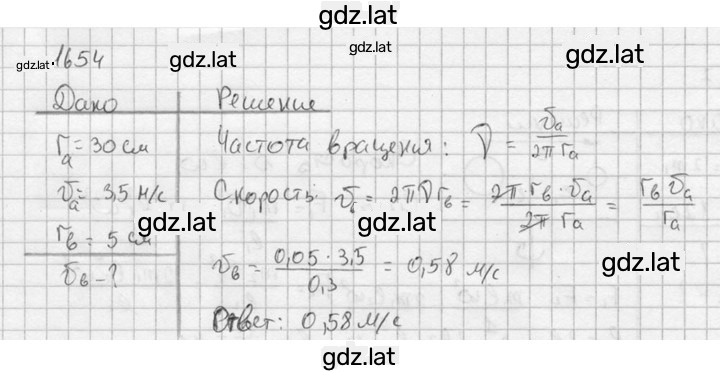 gdz.lat
gdz.lat
gdz.lat
gdz.lat
gdz.lat
1654
Дано
rₐ = 30 см
vₐ = 3,5 м/с
r_B = 5 см
v_B - ?
Решение
Частота вращения: ν = vₐ / 2π rₐ
Скорость: v_B = 2πν r_B = 2π · r_B · vₐ / 2π rₐ = r_B vₐ / rₐ
gdz.lat
gdz.lat
gdz.lat
v_B = 0,05 · 3,5 / 0,3 = 0,58 м/с
Ответ: 0,58 м/с
gdz.lat